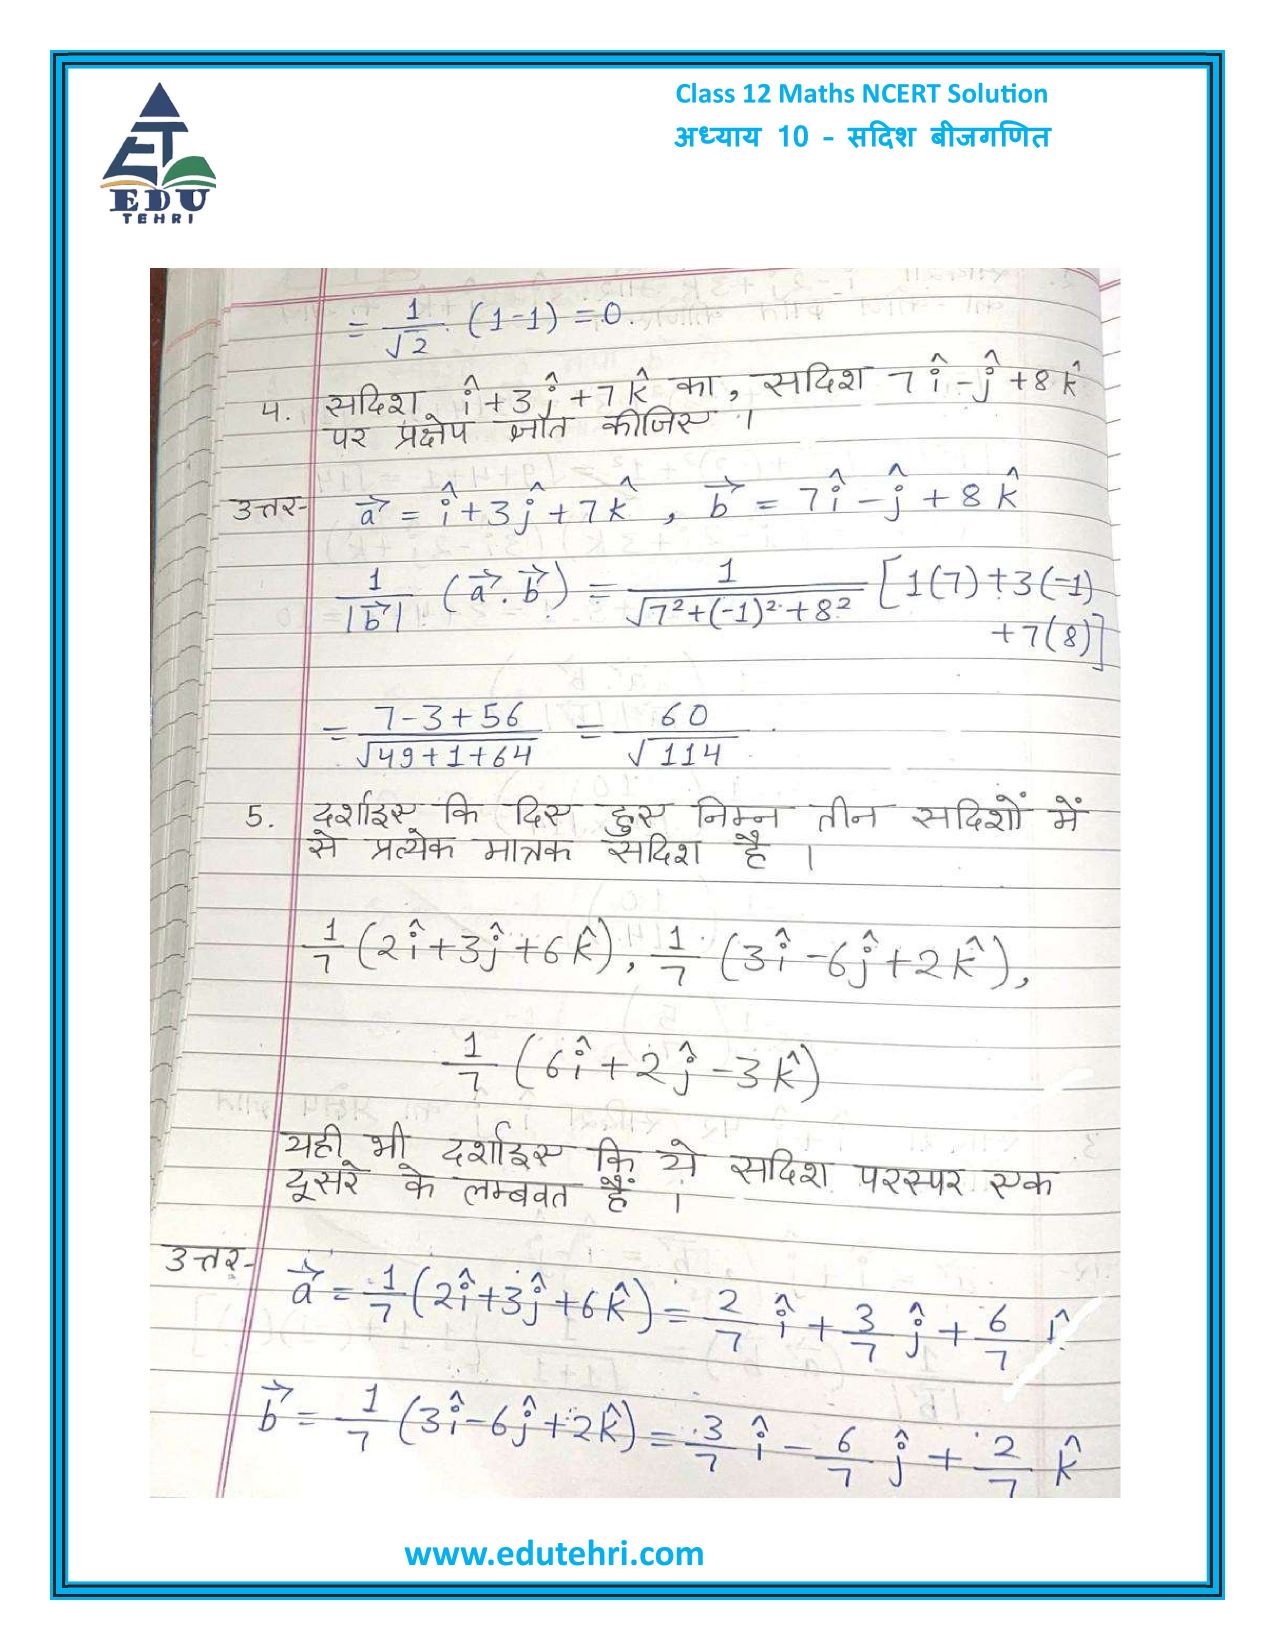 Class 12 Maths NCERT Solution
अध्याय 10 - सदिश बीजगणित
EDU
TEHRI
= 1/√2 . (1-1) = 0.
4. सदिश î + 3ĵ + 7k̂ का, सदिश 7î - ĵ + 8k̂
पर प्रक्षेप ज्ञात कीजिए ।
उत्तर- a⃗ = î + 3ĵ + 7k̂ , b⃗ = 7î - ĵ + 8k̂
1/|b⃗| (a⃗ . b⃗) = 1/√7²+(-1)²+8² [1(7)+3(-1)
+7(8)]
= 7-3+56/√49+1+64 = 60/√114 .
5. दर्शाइए कि दिए हुए निम्न तीन सदिशों में
से प्रत्येक मात्रक सदिश है ।
1/7 (2î+3ĵ+6k̂), 1/7 (3î-6ĵ+2k̂),
1/7 (6î+2ĵ-3k̂)
यही भी दर्शाइए कि ये सदिश परस्पर एक
दूसरे के लम्बवत हैं ।
उत्तर- a⃗ = 1/7 (2î+3ĵ+6k̂) = 2/7 î + 3/7 ĵ + 6/7
b⃗ = 1/7 (3î-6ĵ+2k̂) = 3/7 î - 6/7 ĵ + 2/7 k̂
www.edutehri.com